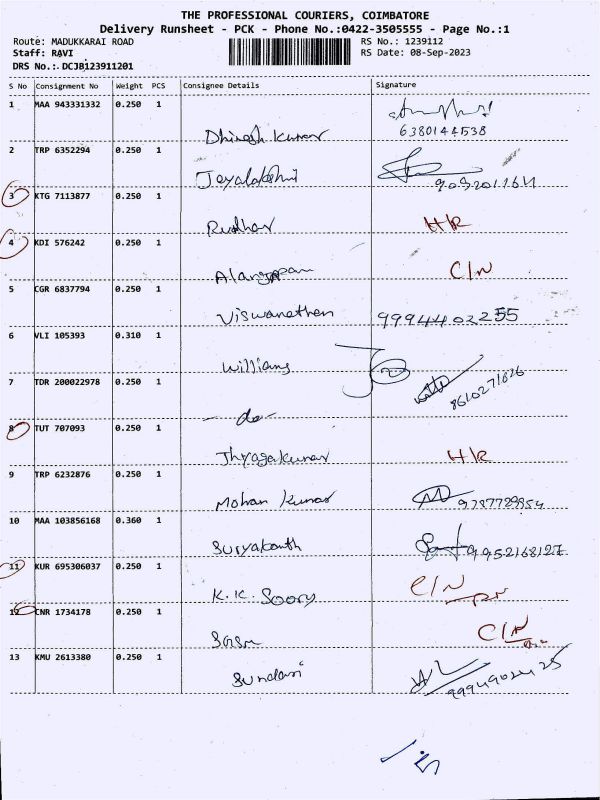 THE PROFESSIONAL COURIERS, COIMBATORE
Delivery Runsheet - PCK - Phone No.:0422-3505555 - Page No.:1
Route: MADUKKARAI ROAD RS No.: 1239112
Staff: RAVI RS Date: 08-Sep-2023
DRS No.: DCJB123911201
S No Consignment No Weight PCS Consignee Details Signature
1 MAA 943331332 0.250 1
Dhinesh Kumar 6380144538
2 TRP 6352294 0.250 1
Jeyalakshmi
3 KTG 7113877 0.250 1
Rudhar HR
4 KDI 576242 0.250 1
Alangppam C/N
5 CGR 6837794 0.250 1
Viswanathan 9994402255
6 VLI 105393 0.310 1
Williams
7 TDR 200022978 0.250 1
- do - 8610271626
8 TUT 707093 0.250 1
Thyagakumar HR
9 TRP 6232876 0.250 1
Mohan Kumar 9787729854
10 MAA 103856168 0.360 1
Suryakanth 9952168127
11 KUR 695306037 0.250 1
K.K. Soory C/N
12 CNR 1734178 0.250 1
C/N
13 KMU 2613380 0.250 1
Sundari 9994902425